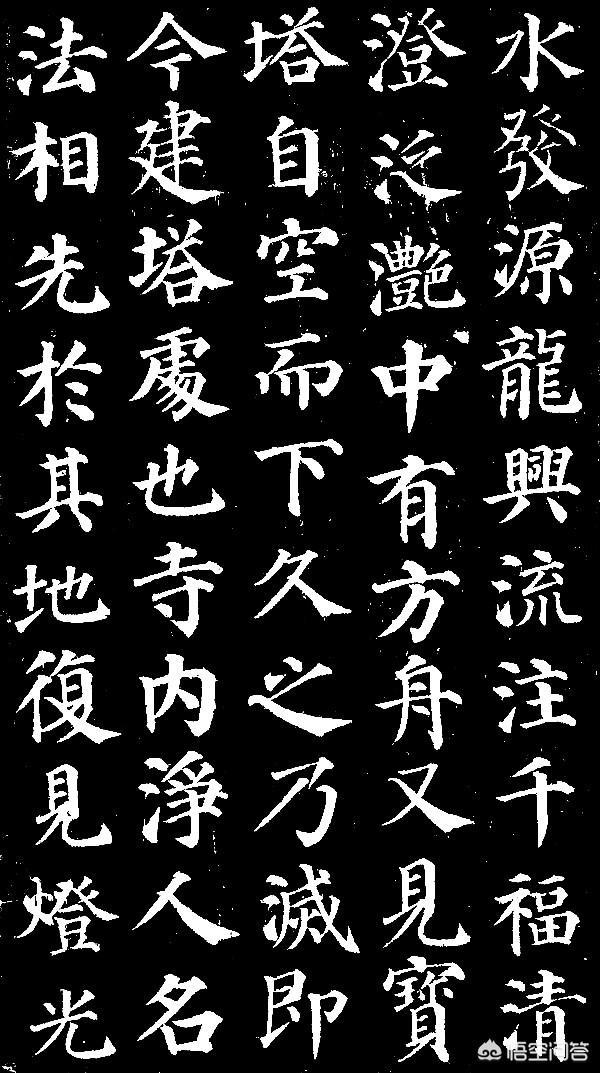 水發源龍興流注千福清
澄泛灩中有方舟又見寶
塔自空而下久之乃滅即
今建塔處也寺内淨人名
法相先於其地復見燈光
悟空问答